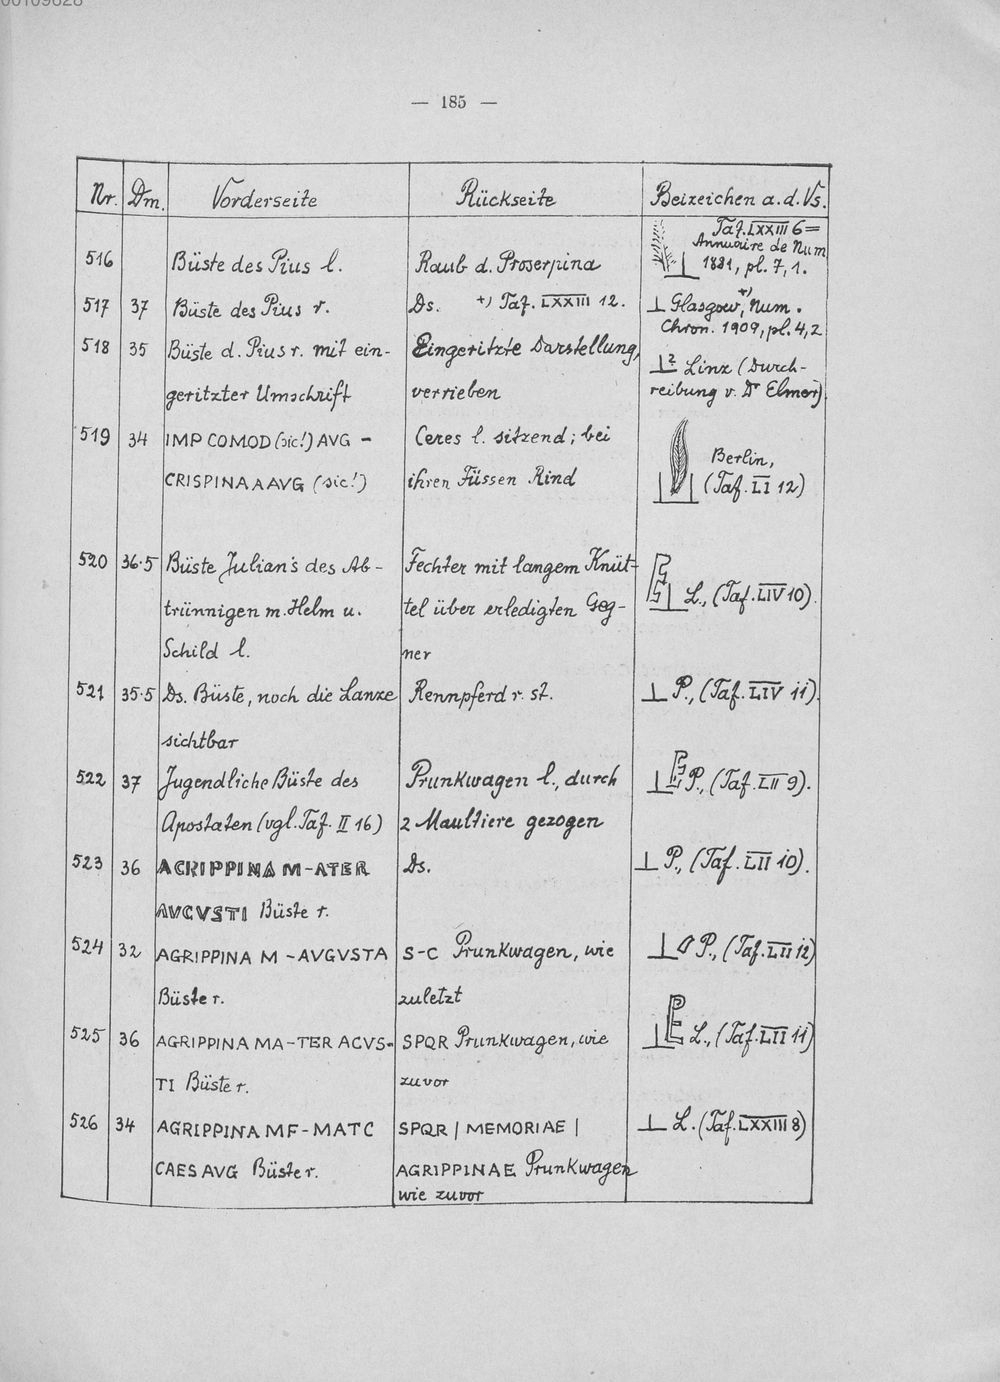 00109628
— 185 —
Nr. Dm. Vorderseite Rückseite Beizeichen a. d. Vs.
516 Büste des Pius l. Raub d. Proserpina Taf. LXXIII 6 =
Annuaire de Num
1881, pl. 7, 1.
517 37 Büste des Pius r. Ds. +) Taf. LXXIII 12. ⊥ Glasgow, +) Num.
Chron. 1909, pl. 4, 2
518 35 Büste d. Pius r. mit ein- Eingeritzte Darstellung, ⊥? Linz (Durch-
geritzter Umschrift verrieben reibung v. Dr Elmer).
519 34 IMP COMOD (sic!) AVG - Ceres l. sitzend; bei Berlin,
CRISPINA A AVG (sic!) ihren Füssen Rind (Taf. LI 12)
520 36·5 Büste Julian's des Ab- Fechter mit langem Knüt- L., (Taf. LIV 10).
trünnigen m. Helm u. tel über erledigten Geg-
Schild l. ner
521 35·5 Ds. Büste, noch die Lanze Rennpferd r. st. ⊥ P., (Taf. LIV 11).
sichtbar
522 37 Jugendliche Büste des Prunkwagen l., durch ⊥ P., (Taf. LII 9).
Apostaten (vgl. Taf. II 16) 2 Maultiere gezogen
523 36 AGRIPPINA M-ATER Ds. ⊥ P., (Taf. LII 10).
AVGVSTI Büste r.
524 32 AGRIPPINA M - AVGVSTA S-C Prunkwagen, wie ⊥ P., (Taf. LII 12)
Büste r. zuletzt
525 36 AGRIPPINA MA-TER AGVS- SPQR Prunkwagen, wie ⊥ L., (Taf. LII 11)
TI Büste r. zuvor
526 34 AGRIPPINA MF-MATC SPQR | MEMORIAE | ⊥ L. (Taf. LXXIII 8)
CAES AVG Büste r. AGRIPPINAE Prunkwagen
wie zuvor